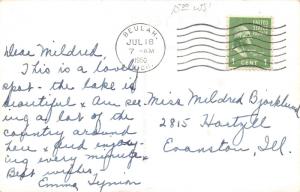 15¢ WS
BEULAH,
JUL 18
7-AM
1950
MICH.
UNITED STATES
POSTAGE
1 CENT 1
Dear Mildred,
This is a lovely
spot - the lake is
beautiful & Am see-
ing a lot of the
country around
here & and enjoy-
ing every minute
Best wishes,
Emma
Miss Mildred Bjorklund
2815 Hartzell
Evanston, Ill.